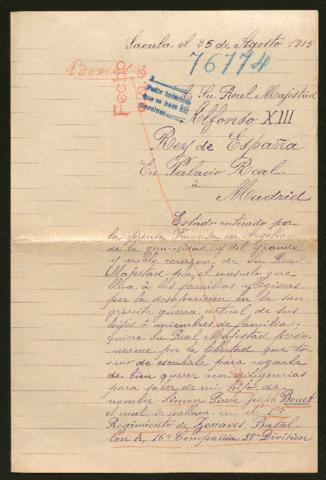 Saoula el 25 de Agosto 1915
Bonet
76774
Fecho
A Su Real Majestad
Alfonso XIII
Rey de España
En Palacio Real
à
Madrid
Estado enterado por
la prensa francesa en Argelia
de la generosidad y del grande
y noble corazon de Su Real
Majestad por el consuelo que
lleva à las familias afligidas
por la desaparicion en la san
grienta guerra actual de sus
hijos ó miembros de familia;
quiera Su Real Majestad perdo
narme por la libertad que to
mo de escribirle para rogarle
de bien querer hacer diligencias
para saber de mi hijo de
nombre Simon Pierre Joseph Bonet
el cual se hallava en el 1er
Regimiento de Zouaves, Batal
lon A, 16e Compania 38e Division